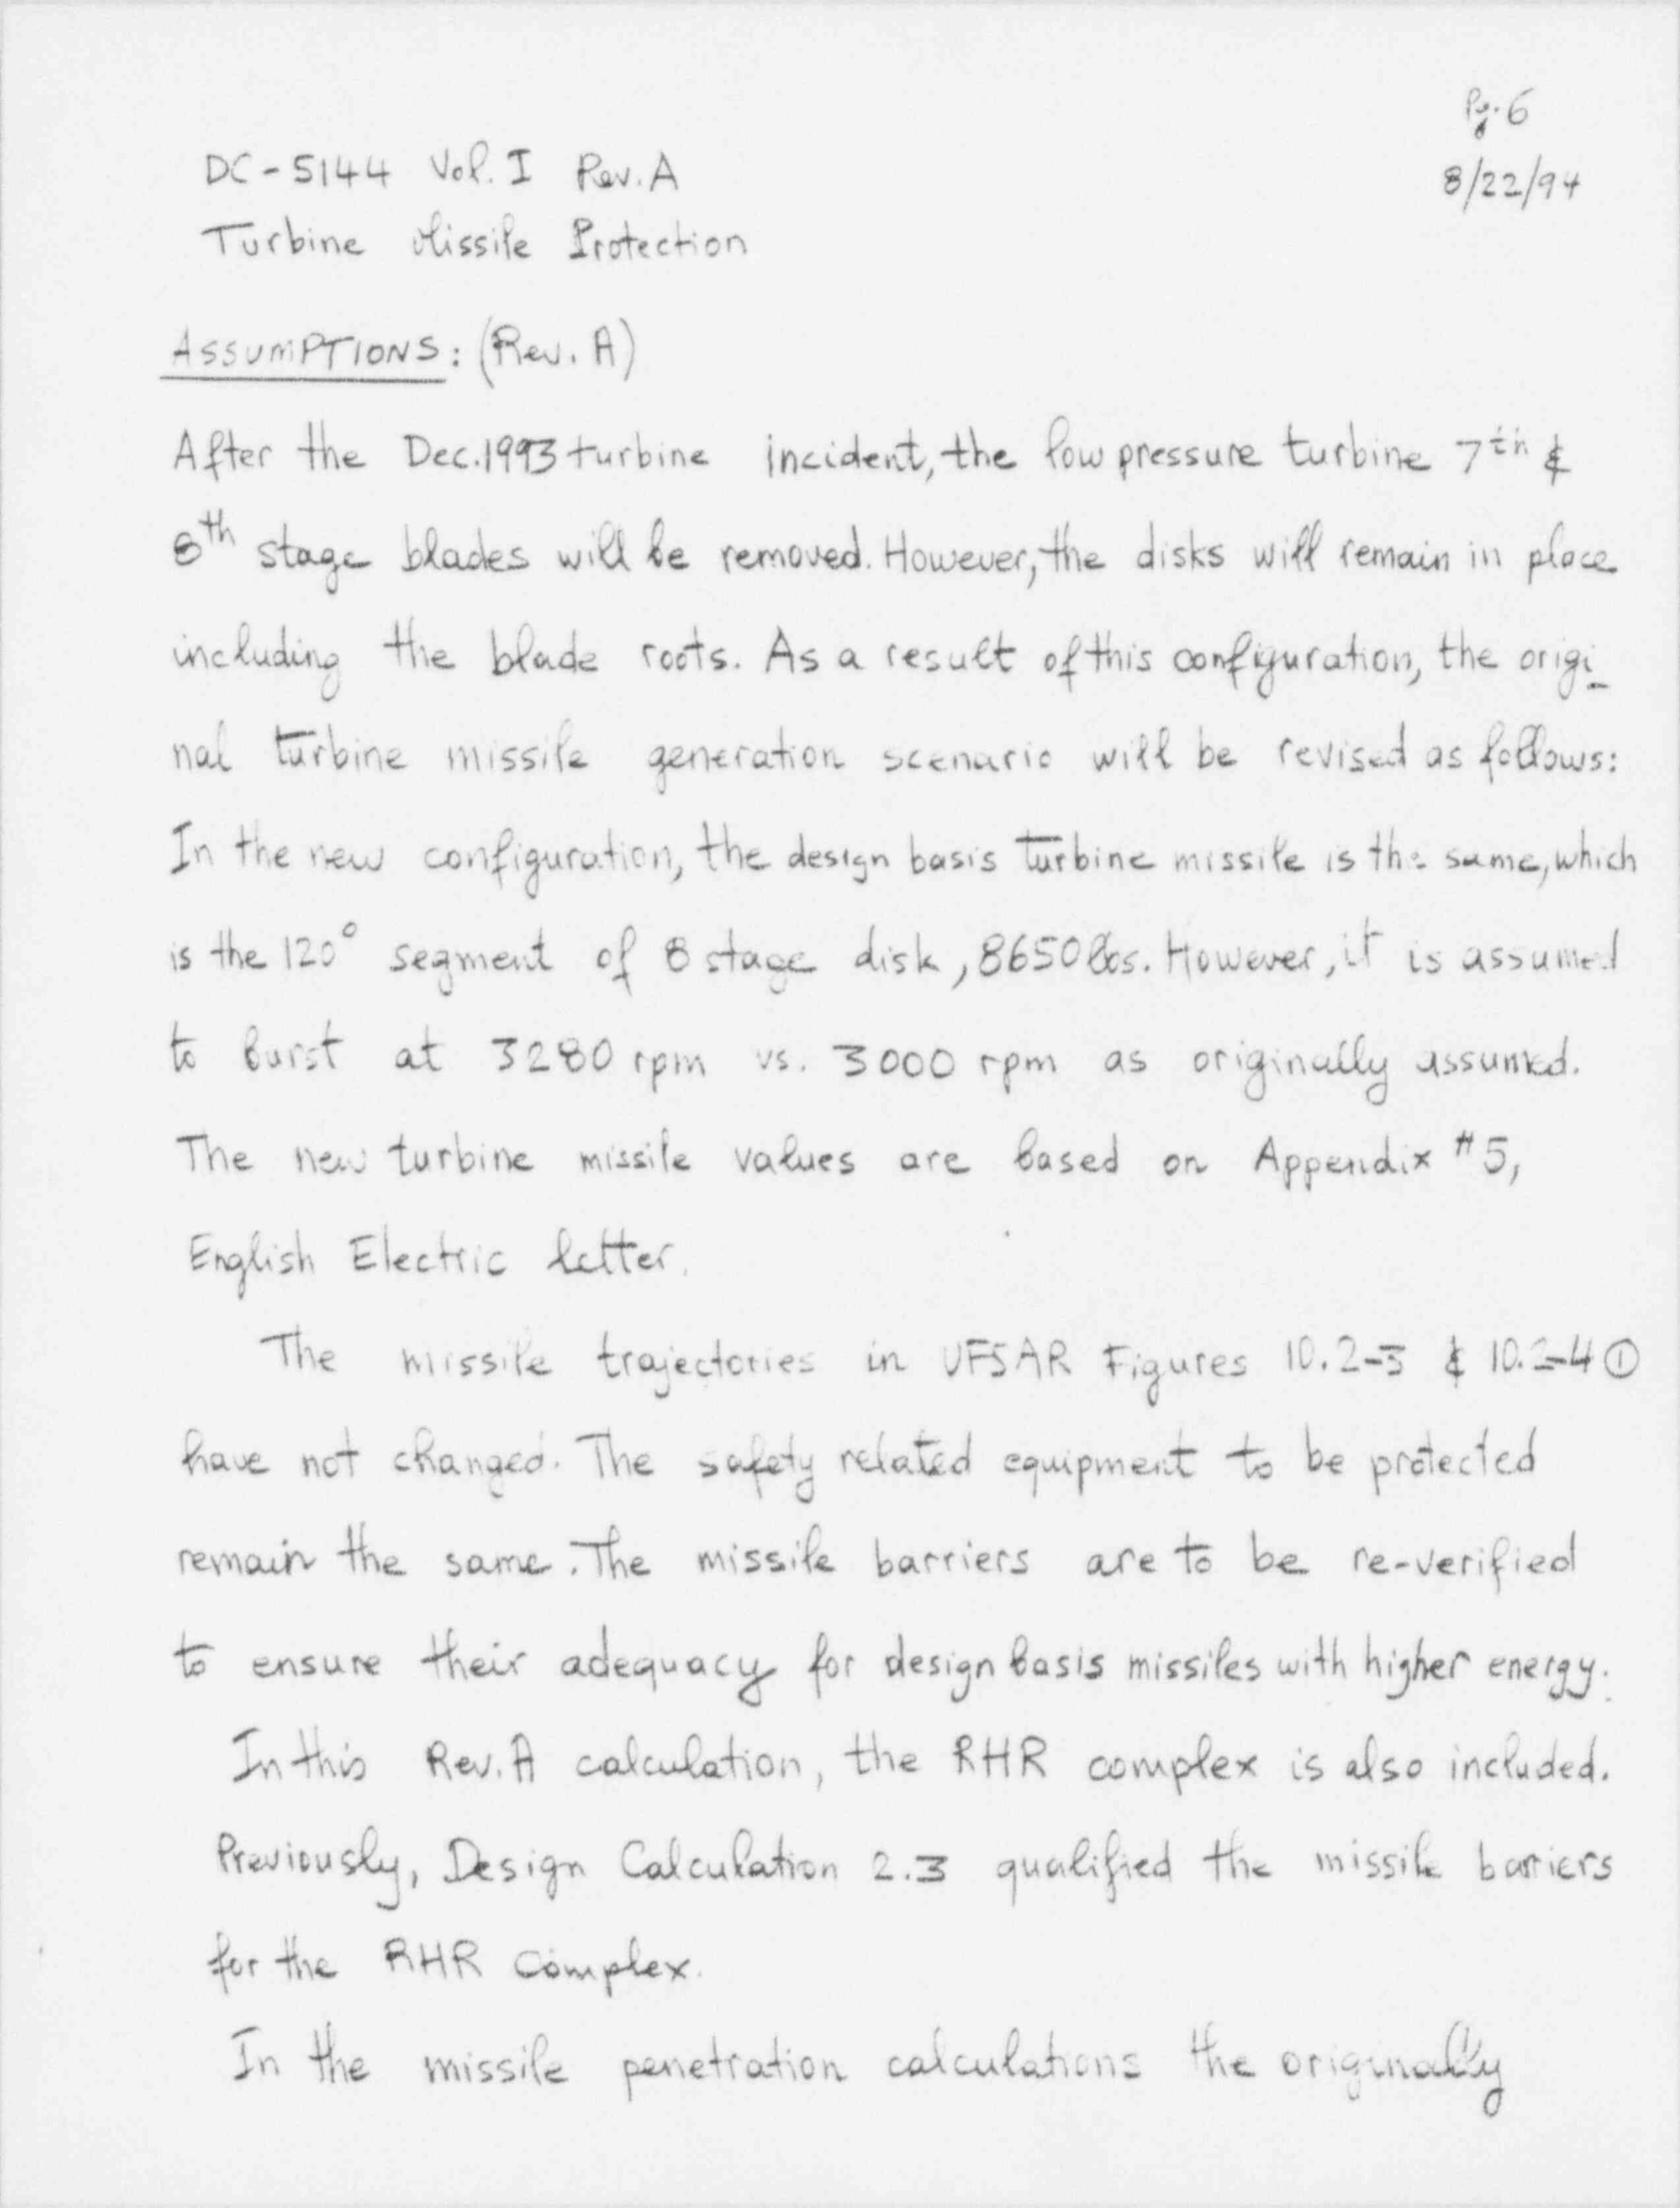 Pg. 6
DC-5144 Vol. I Rev. A
8/22/94
Turbine Missile Protection
ASSUMPTIONS: (Rev. A)
After the Dec. 1993 turbine incident, the low pressure turbine 7th &
8th stage blades will be removed. However, the disks will remain in place
including the blade roots. As a result of this configuration, the origi-
nal turbine missile generation scenario will be revised as follows:
In the new configuration, the design basis turbine missile is the same, which
is the 120° segment of 8 stage disk, 8650 lbs. However, it is assumed
to burst at 3280 rpm vs. 3000 rpm as originally assumed.
The new turbine missile values are based on Appendix #5,
English Electric letter.
The missile trajectories in UFSAR Figures 10.2-3 & 10.2-4 ①
have not changed. The safety related equipment to be protected
remain the same. The missile barriers are to be re-verified
to ensure their adequacy for design basis missiles with higher energy.
In this Rev. A calculation, the RHR complex is also included.
Previously, Design Calculation 2.3 qualified the missile barriers
for the RHR Complex.
In the missile penetration calculations the originally